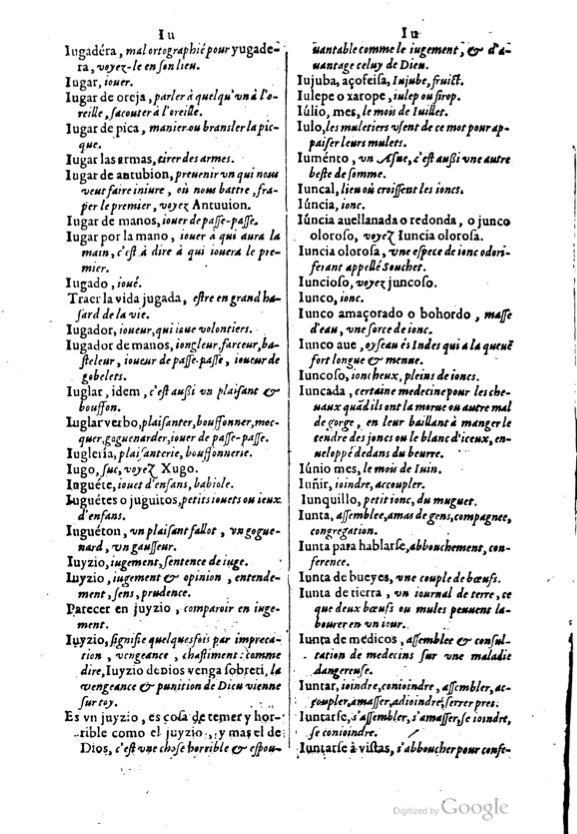 Iu
Iugadéra, mal ortographié pour yugade-
ra, voyez-le en son lieu.
Iugar, iouer.
Iugar de oreja, parler à quelqu'vn à l'o-
reille, sacouter à l'oreille.
Iugar de pica, manier ou bransler la pic-
que.
Iugar las armas, tirer des armes.
Iugar de antubion, preuenir vn qui nous
veut faire iniure, où nous battre, fra-
per le premier, voyez Antuuion.
Iugar de manos, iouer de passe-passe.
Iugar por la mano, iouer à qui aura la
main, c'est à dire à qui iouera le pre-
mier.
Iugado, ioué.
Traer la vida jugada, estre en grand ha-
sard de la vie.
Iugador, ioueur, qui iouë volontiers.
Iugador de manos, iongleur, farceur, ba-
steleur, ioueur de passe-passe, ioueur de
gobelets.
Iuglar, idem, c'est aussi vn plaisant &
bouffon.
Iuglar verbo, plaisanter, bouffonner, moc-
quer, goguenarder, iouer de passe-passe.
Iugleria, plaisanterie, bouffonnerie.
Iugo, suc, voyez Xugo.
Iuguéte, iouet d'enfans, babiole.
Iuguétes o juguitos, petits iouets ou ieux
d'enfans.
Iuguéton, vn plaisant fallot, vn gogue-
nard, vn gausseur.
Iuyzio, iugement, sentence de iuge.
Iuyzio, iugement & opinion, entende-
ment, sens, prudence.
Parecer en juyzio, comparoir en iuge-
ment.
Iuyzio, signifie quelquesfois par impreca-
tion, vengeance, chastiment: comme
dire, Iuyzio de Dios venga sobre ti, la
vengeance & punition de Dieu vienne
sur toy.
Es vn juyzio, es cosa de temer y hor-
rible como el juyzio, y mas el de
Dios, c'est vne chose horrible & espou-
Iu
uantable comme le iugement, & d'a-
uantage celuy de Dieu.
Iujuba, açofeifa, Iujube, fruict.
Iulepe o xarope, iulep ou sirop.
Iúlio, mes, le mois de Iuillet.
Iulo, les muletiers vsent de ce mot pour ap-
paiser leurs mulets.
Iuménto, vn Asne, c'est aussi vne autre
beste de somme.
Iuncal, lieu où croissent les ioncs.
Iúncia, ionc.
Iúncia auellanada o redonda, o junco
oloroso, voyez Iuncia olorosa.
Iuncia olorosa, vne espece de ionc odori-
ferant appellé Souchet.
Iuncioso, voyez juncoso.
Iunco, ionc.
Iunco amaçorado o bohordo, masse
d'eau, vne sorce de ionc.
Iunco aue, oyseau és Indes qui a la queuë
fort longue & menue.
Iuncoso, ioncheux, pleins de ioncs.
Iuncada, certaine medecine pour les che-
uaux quãd ils ont la morue ou autre mal
de gorge, en leur baillant à manger le
tendre des joncs ou le blanc d'iceux, en-
ueloppé dedans du beurre.
Iúnio mes, le mois de Iuin.
Iuñir, ioindre, accoupler.
Iunquillo, petit ionc, du muguet.
Iunta, assemblee, amas de gens, compagnee,
congregation.
Iunta para hablarse, abbouchement, con-
ference.
Iunta de bueyes, vne couple de bœufs.
Iunta de tierra, vn iournal de terre, ce
que deux bœufs ou mules peuuent la-
bourer en vn iour.
Iunta de médicos, assemblee & consul-
tation de medecins sur vne maladie
dangereuse.
Iuntar, ioindre, conioindre, assembler, ac-
coupler, amasser, adioindre, serrer pres.
Iuntarse, s'assembler, s'amasser, se ioindre,
se conioindre.
Iuntarse à vistas, s'abboucher pour confe-
Digitized by Google